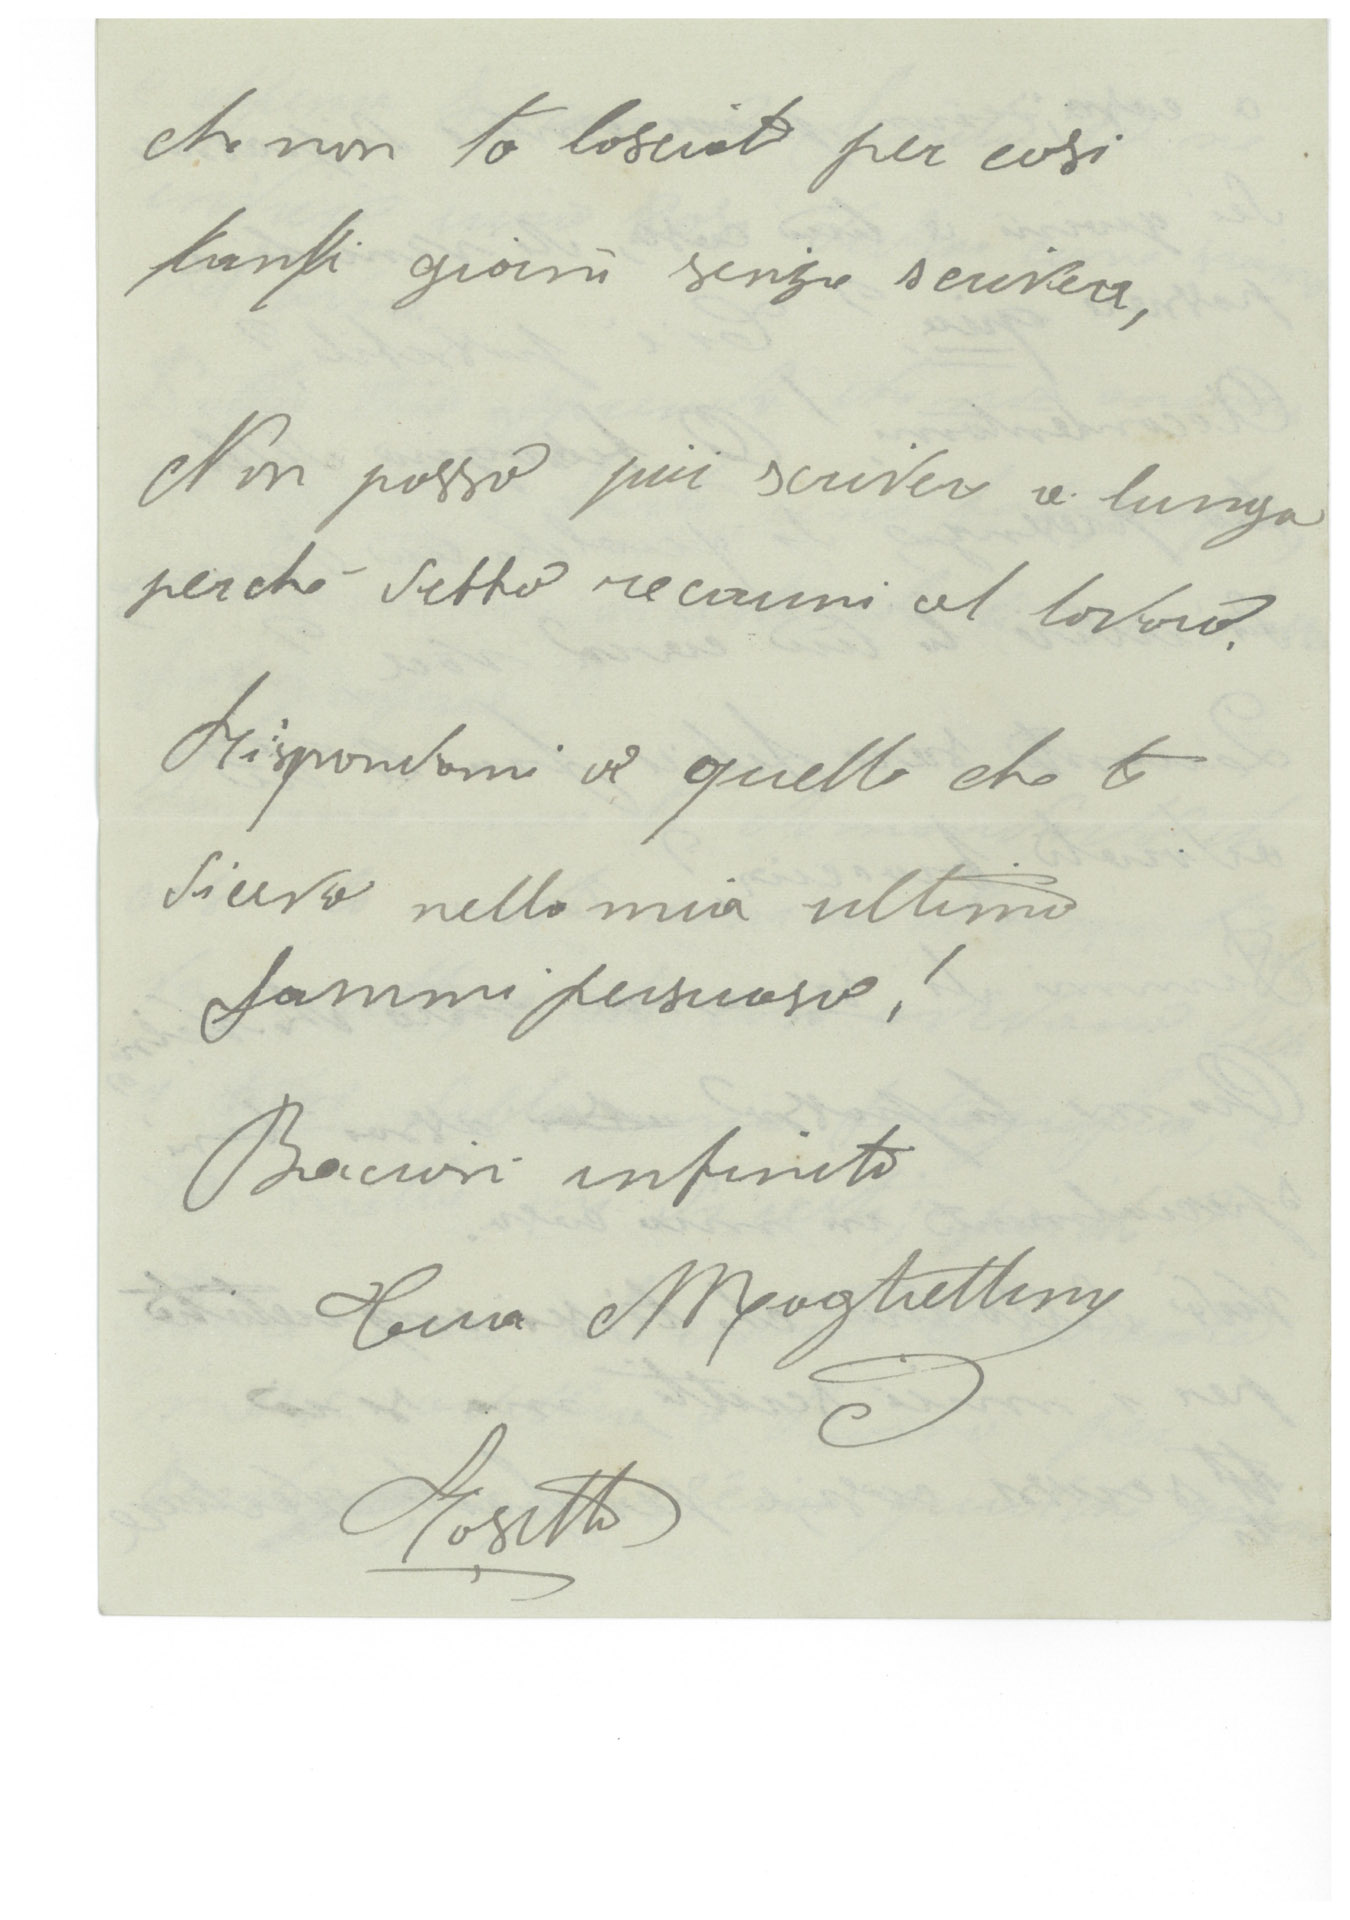 che non to lasciato per così
tanti giorni senza scrivere,
Non posso più scrivere a lungo
perché detto recarmi al lavoro.
Rispondemi a quello che te
dicevo nella mia ultima
fammi persuaso!
Bacioni infiniti
tua Mogliettina
Rosetta